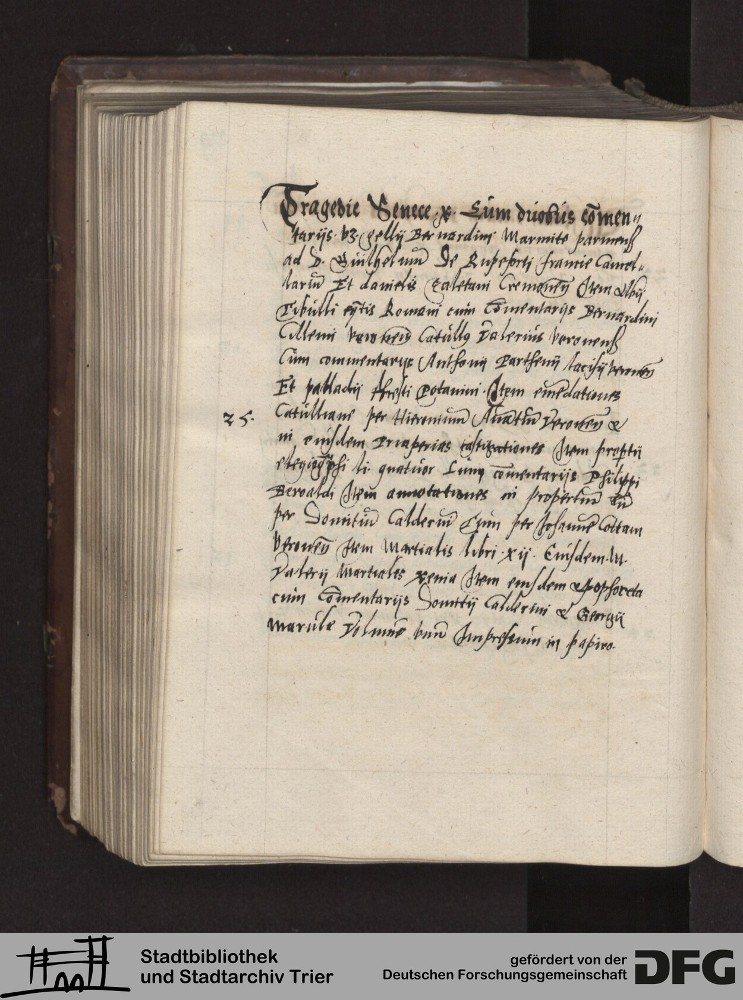 Tragedie Senece x. Cum duobus cōmen„
tarijs vz gellij Bernardini Marmite parmenß
ad D. Guilhelmū De Rupeforti francie Cancel„
lariū Et danielis galetani Cremonen̄ Item Albij
Tibulli eq̄tis Romani cum Cōmentarijs Bernardini
Cillenij veronen̄ Catullꝰ Valerius veronenß
Cum commentarijs Anthonij Parthenij lacisij veronen̄
Et palladij fusci patavini. Item emēdationes
25. Catulliane per Hieronimū Avātiū Veronen̄ &
in eiusdem Priapeias castigationes Item propertij
elegiogr̄phi li quatuor Cum cōmentarijs Philippi
Beroaldi Item annotationes in propertium tū
per Domitiū Calderinū Cum per Johannē Cottam
Veronen̄ Item Martialis libri xij. Eiusdem M.
Valerij Martiales xenia Item eiusdem Apophoreta
cum Cōmentarijs Domitij Calderini & Georgij
Marule Volumē vnū Impressum in papiro.
Stadtbibliothek
und Stadtarchiv Trier
gefördert von der
Deutschen Forschungsgemeinschaft
DFG